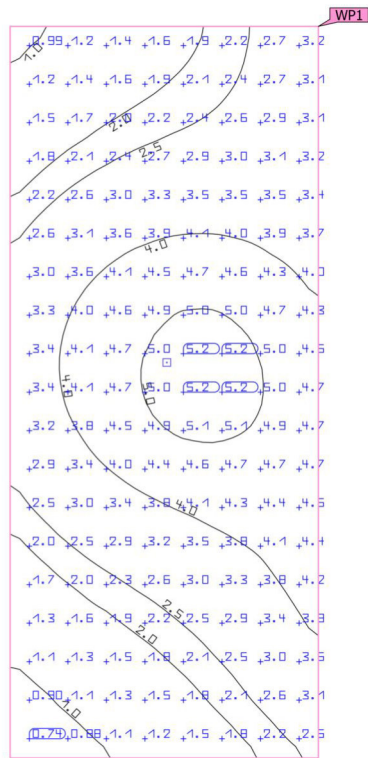 WP1
0.99 1.2 1.4 1.6 1.9 2.2 2.7 3.2
1.0
1.2 1.4 1.6 1.9 2.1 2.4 2.7 3.1
1.5 1.7 2.0 2.2 2.4 2.6 2.9 3.1
2.0
1.8 2.1 2.4 2.7 2.9 3.0 3.1 3.2
2.5
2.2 2.6 3.0 3.3 3.5 3.5 3.5 3.4
2.6 3.1 3.6 3.9 4.1 4.0 3.9 3.7
4.0
3.0 3.6 4.1 4.5 4.7 4.6 4.3 4.0
3.3 4.0 4.6 4.9 5.0 5.0 4.7 4.3
3.4 4.1 4.7 5.0 5.2 5.2 5.0 4.6
3.4 4.1 4.7 5.0 5.2 5.2 5.0 4.7
4.0 5.0
3.2 3.8 4.5 4.8 5.1 5.1 4.9 4.7
2.9 3.4 4.0 4.4 4.6 4.7 4.7 4.7
2.5 3.0 3.4 3.8 4.1 4.3 4.4 4.5
4.0
2.0 2.5 2.9 3.2 3.5 3.8 4.1 4.4
1.7 2.0 2.3 2.6 3.0 3.3 3.8 4.2
2.5
1.3 1.6 1.9 2.2 2.5 2.9 3.4 3.9
2.0
1.1 1.3 1.5 1.8 2.1 2.5 3.0 3.5
0.90 1.1 1.3 1.5 1.8 2.1 2.6 3.1
1.0
0.74 0.88 1.1 1.2 1.5 1.8 2.2 2.6